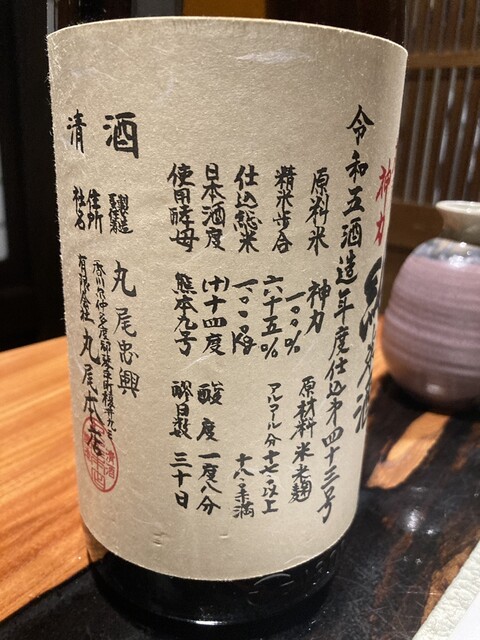 神力
純米酒
令和五酒造年度仕込第四十三号
原料米 神力 一〇〇%
原材料 米 米麹
精米歩合 六十五%
アルコール分 十七以上十八未満
仕込総米 一〇〇〇kg
日本酒度 (+)十四度
酸度 一度八分
使用酵母 熊本九号
醪日数 三十日
清酒
製造責任者 丸尾忠興
住所 香川県仲多度郡琴平町榎井
社名 有限会社 丸尾本店
清酒